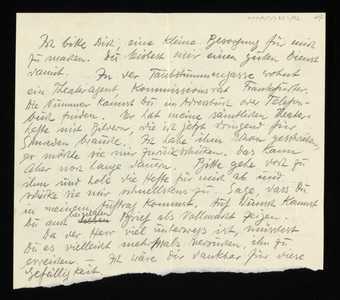 Ich bitte Dich, eine kleine Besorgung für mich
zu machen. Du leistest mir einen guten Dienst
damit. In der Taubstummengasse wohnt
ein Theateragent, Kommissionsrat Frankfurter.
Die Nummer kannst Du im Adressbuch oder Telefon-
buch finden. Er hat meine sämtlichen Theater-
hefte mit Bildern, die ich jetzt dringend für
Schweden brauche. Ich habe ihm schon geschrieben,
er möchte sie mir zurückschicken. Das kann
aber noch lange dauern. Bitte gehe doch zu
ihm und hole die Hefte für mich ab und
schicke sie mir schnellstens zu. Sage, dass Du
in meinem Auftrag kommst. Auf Wunsch kannst
Du auch beiliegenden Brief als Vollmacht zeigen.
Da der Herr viel unterwegs ist, müsstest
Du es vielleicht mehrmals versuchen, ihn zu
erreichen. — Ich wäre Dir dankbar für diese
Gefälligkeit.